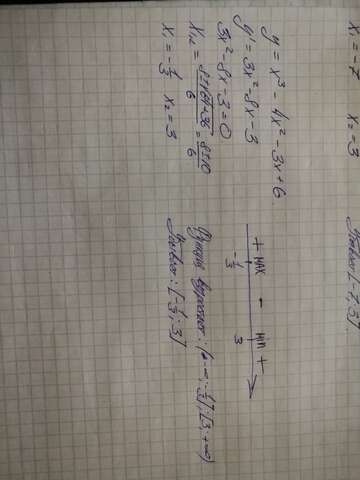 x₁ = -7    x₂ = -3
y = x³ - 4x² - 3x + 6
y' = 3x² - 8x - 3
3x² - 8x - 3 = 0
x₁,₂ = (8 ± √64+36)/6 = (8 ± 10)/6
x₁ = -1/3    x₂ = 3
+ max - min +
-1/3    3
возрастает: (-∞; -1/3] ; [3; +∞)
Убывает: [-1/3; 3]